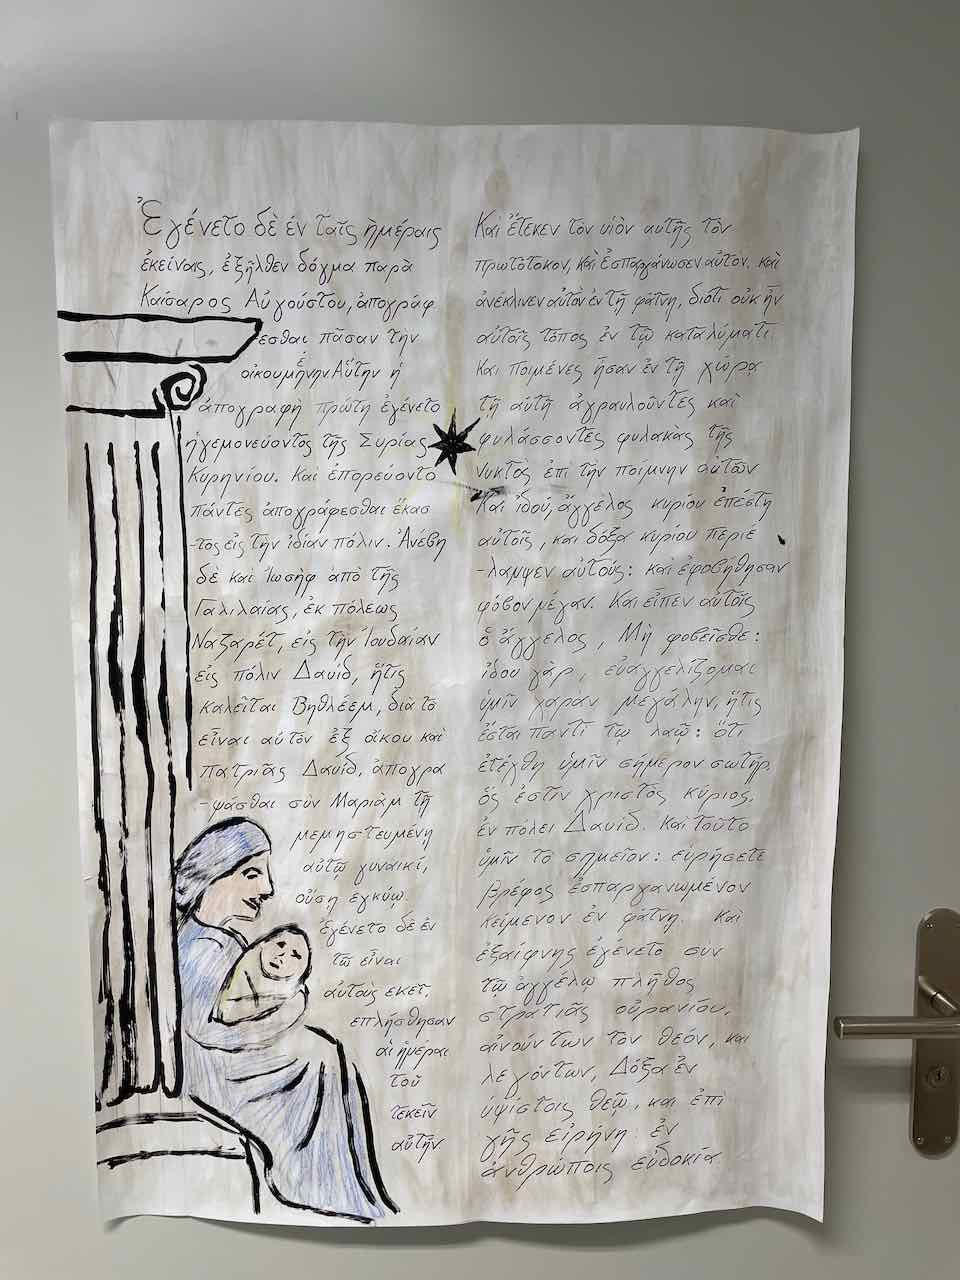 Ἐγένετο δὲ ἐν ταῖς ἡμέραις
ἐκείναις, ἐξῆλθεν δόγμα παρὰ
Καίσαρος Αὐγούστου, ἀπογράφ
εσθαι πᾶσαν τὴν
οἰκουμένην Αὕτην ἡ
ἀπογραφὴ πρώτη ἐγένετο
ἡγεμονεύοντος τῆς Συρίας
Κυρηνίου. Καὶ ἐπορεύοντο
πάντες ἀπογράφεσθαι ἕκασ
-τος εἰς τὴν ἰδίαν πόλιν. Ἀνέβη
δὲ καὶ Ἰωσὴφ ἀπὸ τῆς
Γαλιλαίας, ἐκ πόλεως
Ναζαρέτ, εἰς τὴν Ἰουδαίαν
εἰς πόλιν Δαυίδ, ἥτις
καλεῖται Βηθλέεμ, διὰ τὸ
εἶναι αὐτὸν ἐξ οἴκου καὶ
πατριᾶς Δαυίδ, ἀπογρα
-ψάσθαι σὺν Μαριὰμ τῇ
μεμηστευμένῃ
αὐτῷ γυναικί,
οὔσῃ εγκύῳ.
ἐγένετο δὲ ἐν
τῷ εἶναι
αὐτοὺς ἐκεῖ,
επλήσθησαν
αἱ ἡμέραι
τοῦ
τεκεῖν
αὐτήν
Καὶ ἔτεκεν τὸν υἱὸν αυτῆς τὸν
πρωτότοκον, καὶ ἐσπαργάνωσεν αὐτόν. καὶ
ἀνέκλινεν αὐτὸν ἐν τῇ φάτνῃ, διότι οὐκ ἦν
αὐτοῖς τόπος ἐν τῷ καταλύματι.
Καὶ ποιμένες ἦσαν ἐν τῇ χώρᾳ
τῇ αὐτῇ ἀγραυλοῦντες καὶ
φυλάσσοντες φυλακὰς τῆς
νυκτὸς ἐπὶ τὴν ποίμνην αὐτῶν
Καὶ ἰδού, ἄγγελος κυρίου ἐπέστη
αὐτοῖς, καὶ δόξα κυρίου περιέ
-λαμψεν αὐτούς: καὶ ἐφοβήθησαν
φόβον μέγαν. Καὶ εἶπεν αὐτοῖς
ὁ ἄγγελος, Μὴ φοβεῖσθε:
ἰδου γὰρ, εὐαγγελίζομαι
ὑμῖν χαρὰν μεγάλην, ἥτις
ἔσται παντὶ τῷ λαῷ: ὅτι
ἐτέχθη ὑμῖν σήμερον σωτήρ,
ὅς ἐστιν χριστὸς κύριος,
ἐν πόλει Δαυίδ. Καὶ τοῦτο
ὑμῖν τὸ σημεῖον: εὑρήσετε
βρέφος ἐσπαργανωμένον
κείμενον ἐν φάτνῃ. Καὶ
ἐξαίφνης ἐγένετο συν
τῷ ἀγγέλῳ πλῆθος
στρατιᾶς οὐρανίου,
αἰνούντων τὸν θεόν, και
λεγόντων, Δόξα ἐν
ὑψίστοις θεῷ, και ἐπὶ
γῆς εἰρήνη· ἐν
ἀνθρώποις εὐδοκία.